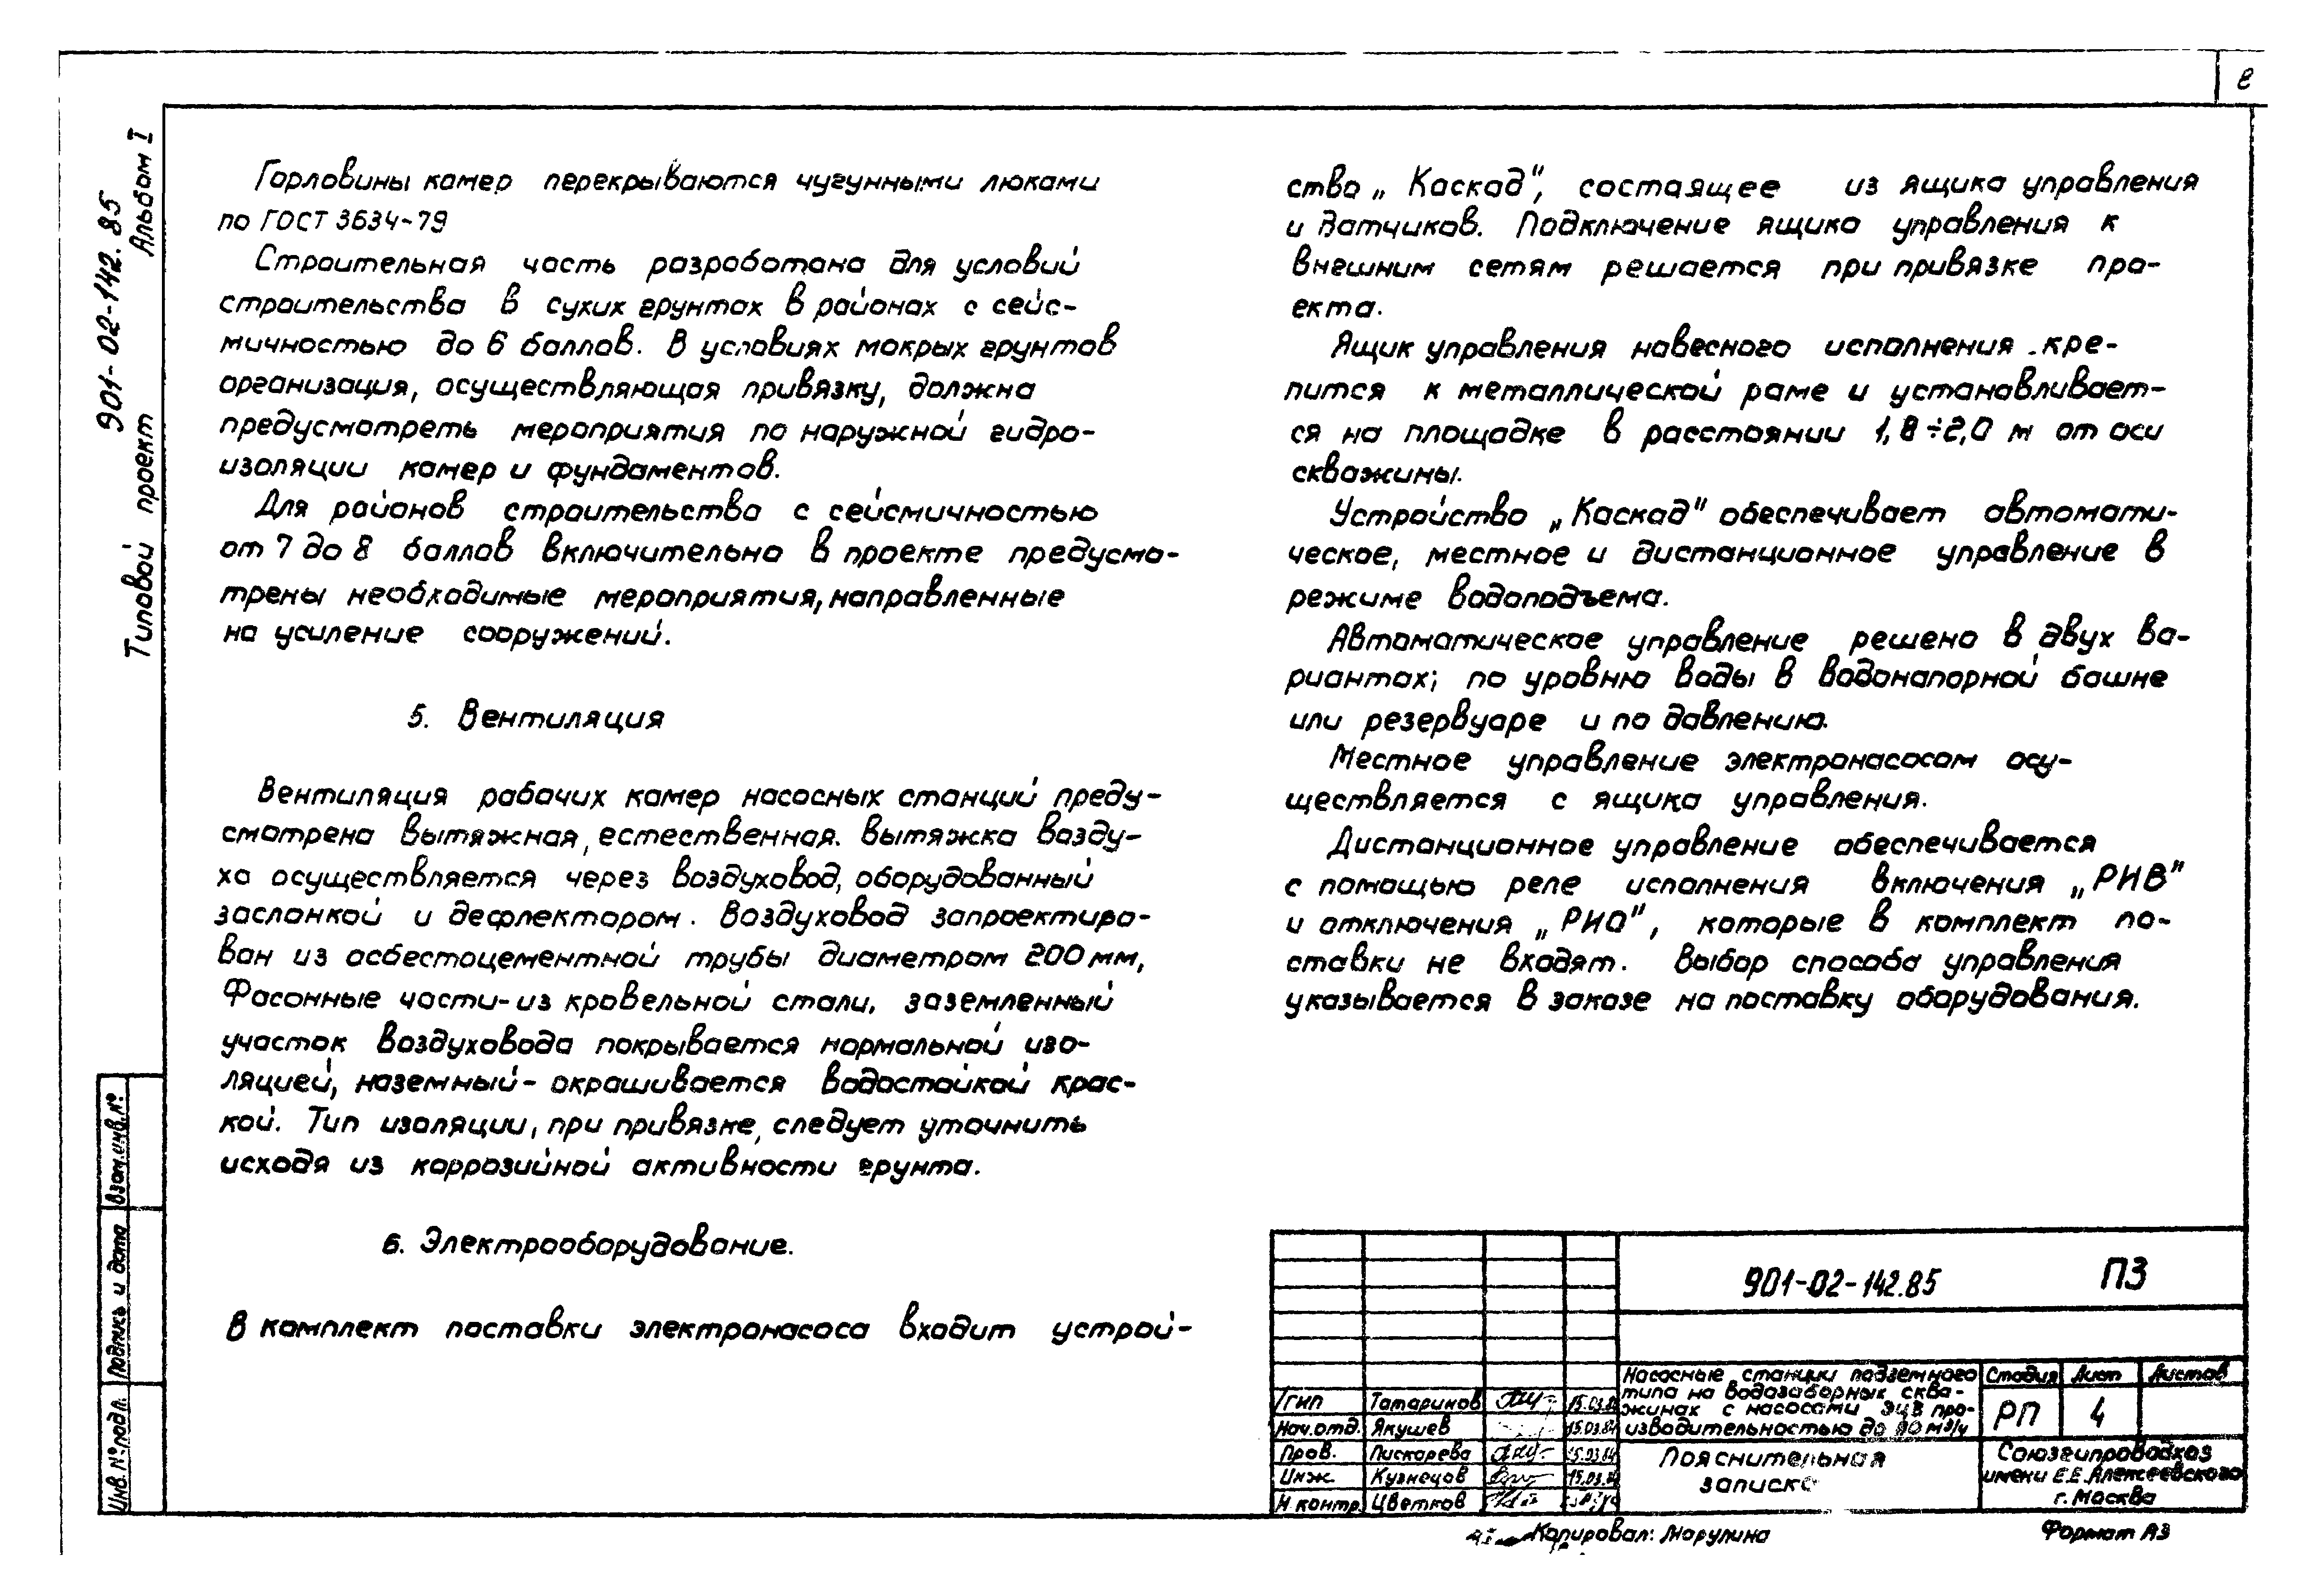 8
901-02-142.85
Альбом I
Типовой проект
Горловины камер перекрываются чугунными люками
по ГОСТ 3634-79
Строительная часть разработана для условий
строительства в сухих грунтах в районах с сейс-
мичностью до 6 баллов. В условиях мокрых грунтов
организация, осуществляющая привязку, должна
предусмотреть мероприятия по наружной гидро-
изоляции камер и фундаментов.
Для районов строительства с сейсмичностью
от 7 до 8 баллов включительно в проекте предусмо-
трены необходимые мероприятия, направленные
на усиление сооружений.
5. Вентиляция
Вентиляция рабочих камер насосных станций преду-
смотрена вытяжная, естественная. Вытяжка возду-
ха осуществляется через воздуховод, оборудованный
заслонкой и дефлектором. Воздуховод запроектиро-
ван из асбестоцементной трубы диаметром 200 мм,
Фасонные части- из кровельной стали, заземленный
участок воздуховода покрывается нормальной изо-
ляцией, наземный- окрашивается водостойкой крас-
кой. Тип изоляции, при привязке, следует уточнить
исходя из коррозийной активности грунта.
6. Электрооборудование.
В комплект поставки электронасоса входит устрой-
ство „Каскад", состоящее из ящика управления
и датчиков. Подключение ящика управления к
внешним сетям решается при привязке про-
екта.
Ящик управления навесного исполнения кре-
пится к металлической раме и устанавливает-
ся на площадке в расстоянии 1,8÷2,0 м от оси
скважины.
Устройство „Каскад" обеспечивает автомати-
ческое, местное и дистанционное управление в
режиме водоподъема.
Автоматическое управление решено в двух ва-
риантах; по уровню воды в водонапорной башне
или резервуаре и по давлению.
Местное управление электронасосом осу-
ществляется с ящика управления.
Дистанционное управление обеспечивается
с помощью реле исполнения включения „РИВ"
и отключения „РИО", которые в комплект по-
ставки не входят. Выбор способа управления
указывается в заказе на поставку оборудования.
Взам.инв.№
Подпись и дата
Инв.№ подл.
901-02-142.85 ПЗ
Насосные станции подземного
типа на водозаборных сква-
жинах с насосами ЭЦВ про-
изводительностью до м3/ч
Стадия Лист Листов
РП 4
ГИП Татаринов 15.03.84
Нач.отд. Якушев 15.03.84
Пров. Пискарева 15.03.84
Инж. Кузнецов 15.03.84
Н.контр. Цветков
Пояснительная
записка
Союзгипроводхоз
имени Е.Е.Алексеевского
г. Москва
Копировал: Марулина
Формат А3